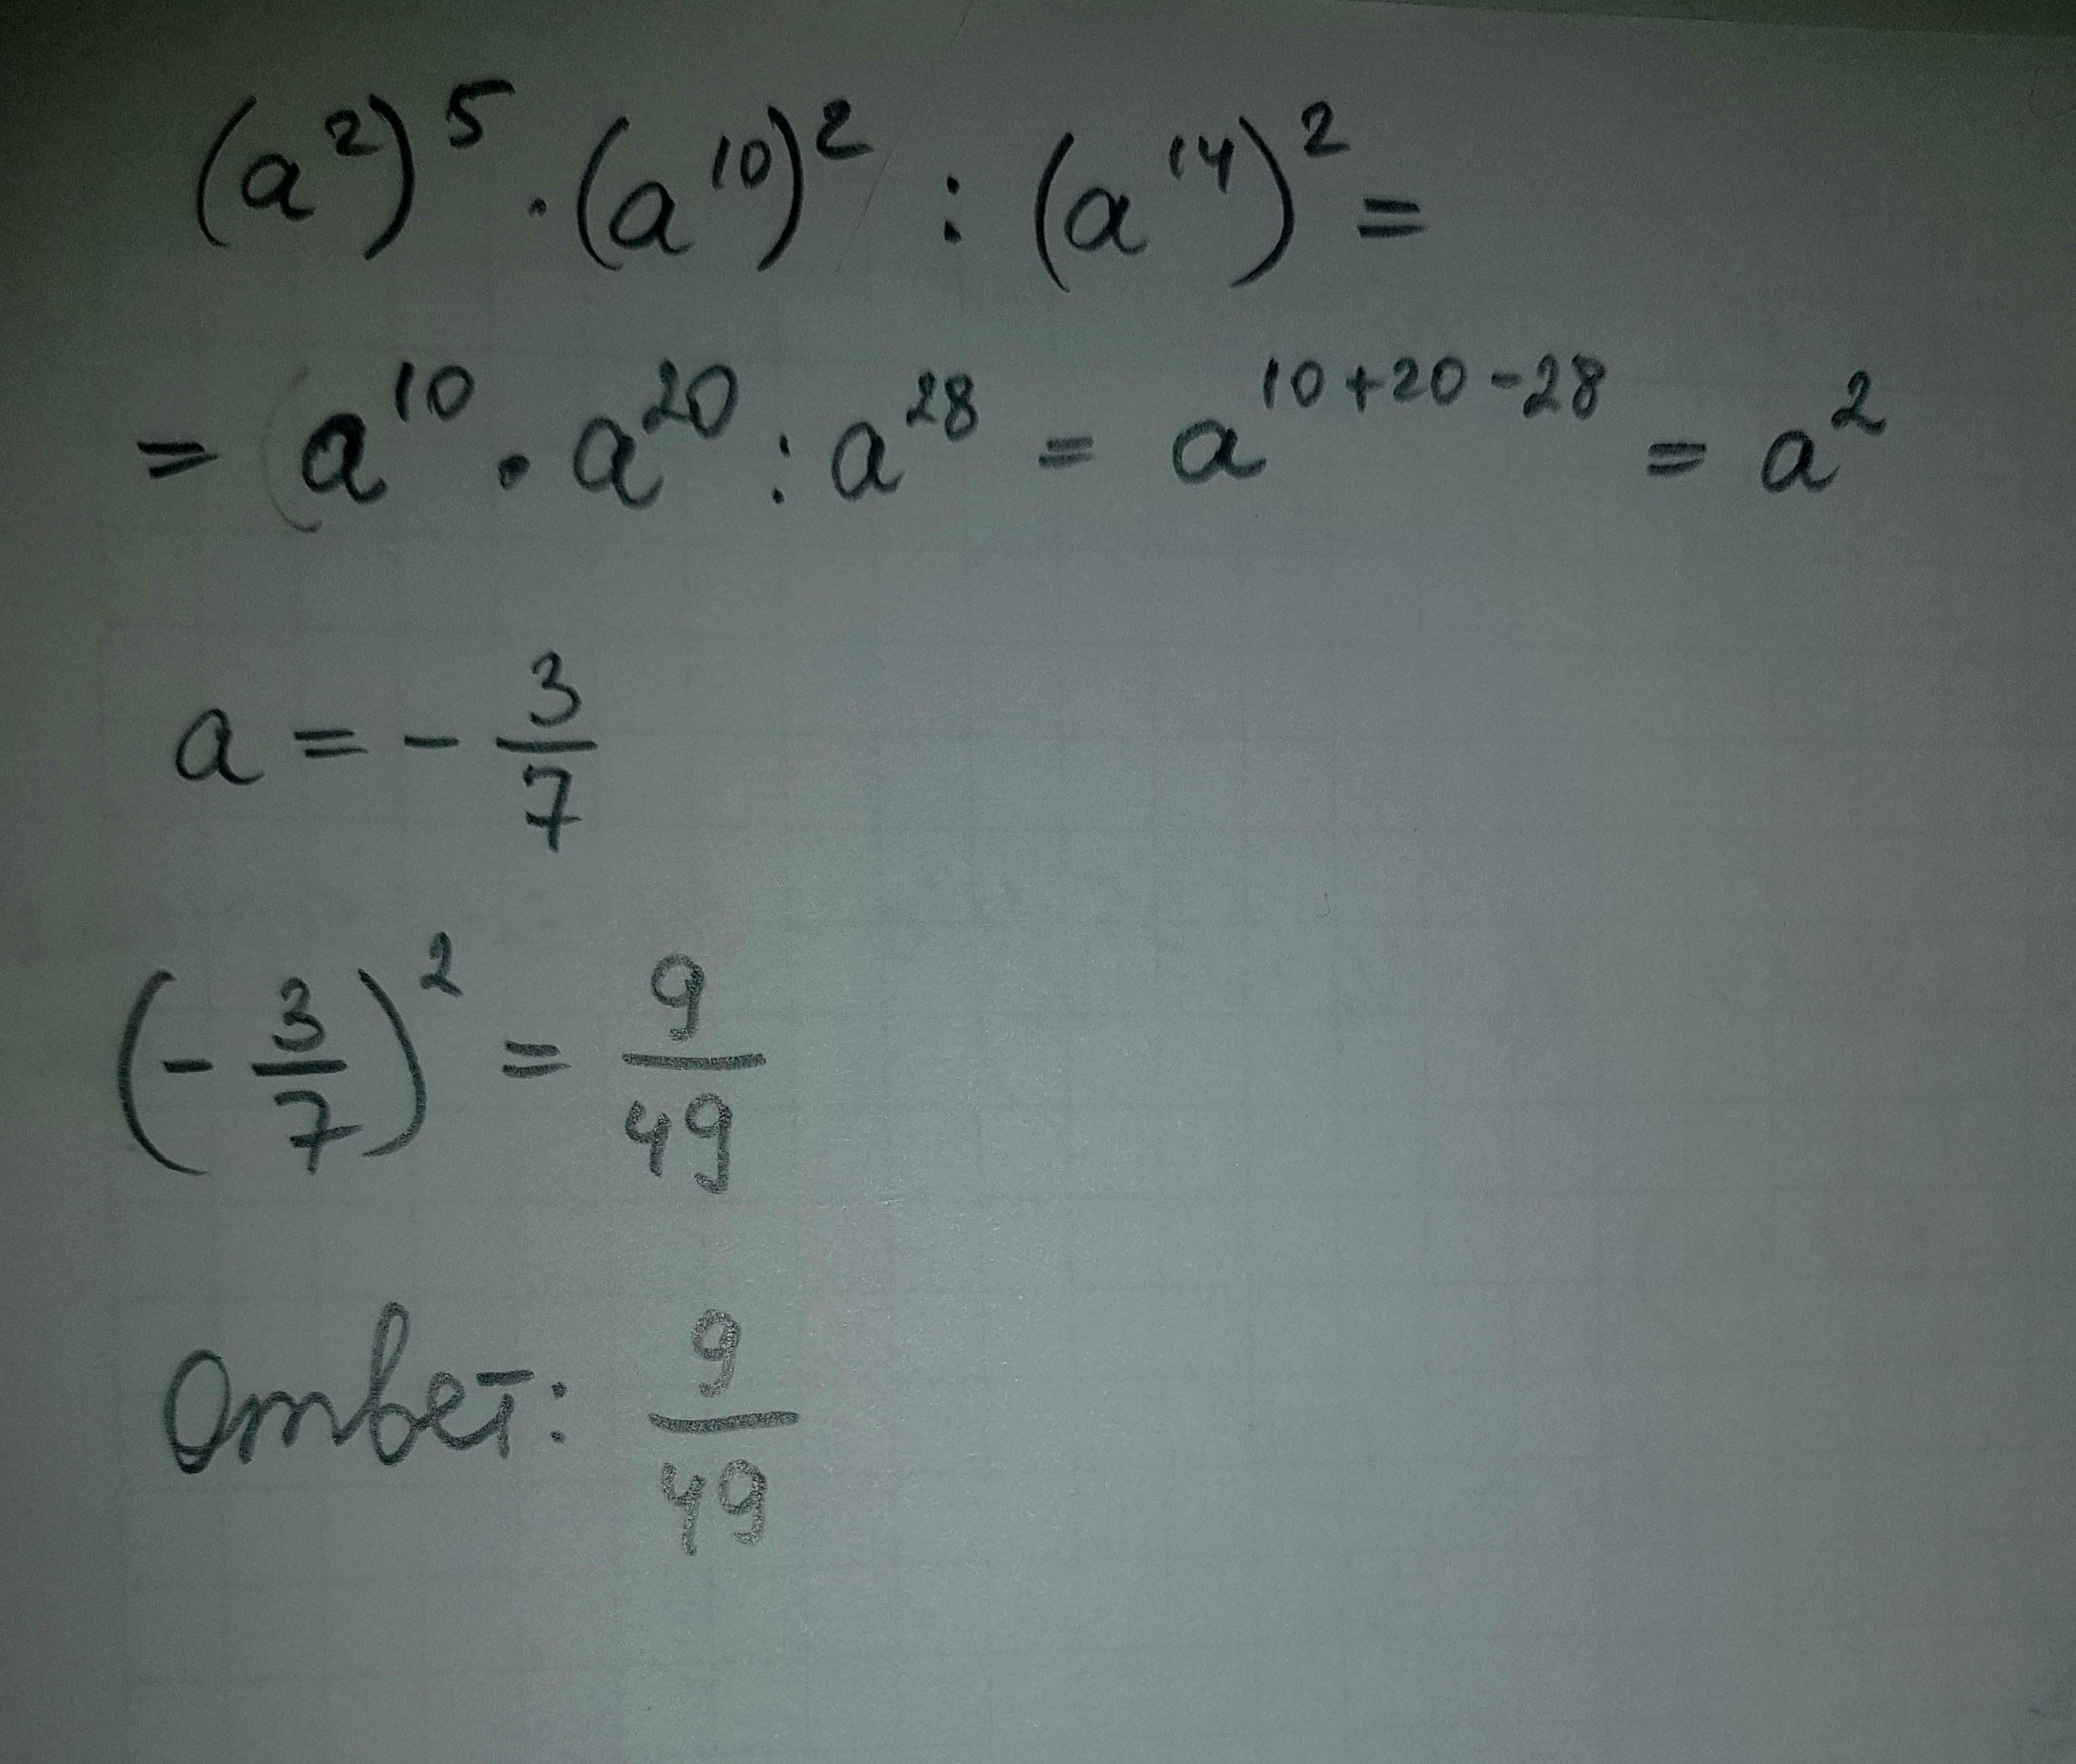 (a²)⁵ · (a¹⁰)² : (a¹⁴)² =
= a¹⁰ · a²⁰ : a²⁸ = a¹⁰⁺²⁰⁻²⁸ = a²
a = - 3/7
(- 3/7)² = 9/49
Ответ: 9/49